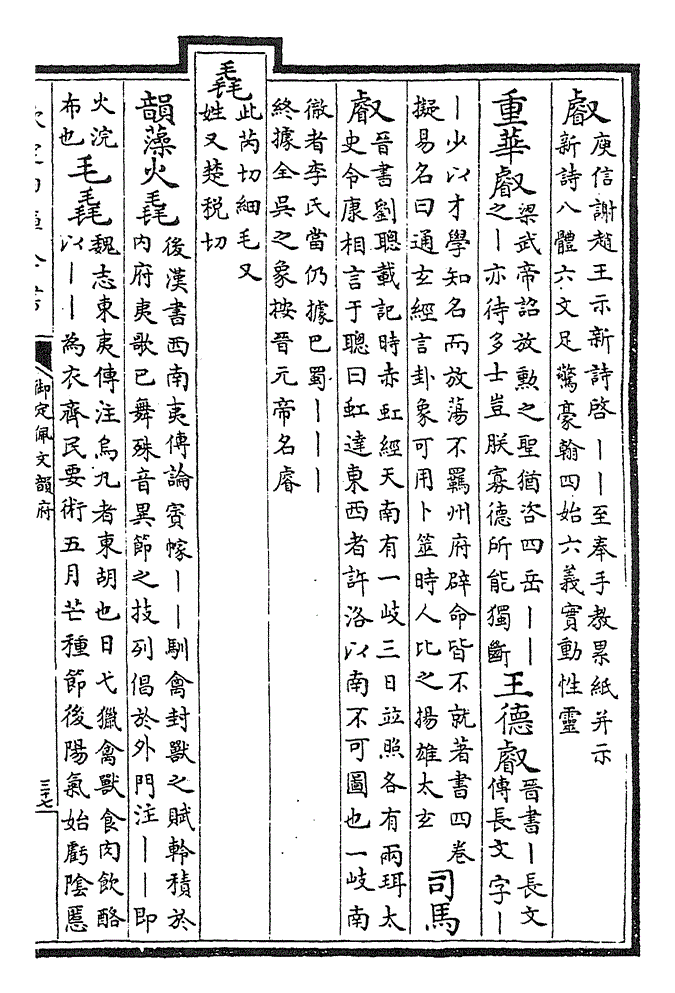 叡
庾信謝趙王示新詩啓丨丨至奉手教累紙并示
新詩八體六文足驚豪翰四始六義實動性靈
重華叡
梁武帝詔放勲之聖猶咨四岳丨丨
之丨亦待多士豈朕寡德所能獨斷
王德叡
晉書丨長文
傳長文字丨
丨少以才學知名而放蕩不羈州府辟命皆不就著書四卷
擬易名曰通玄經言卦象可用卜筮時人比之揚雄太玄
司馬
叡
晉書劉聰載記時赤虹經天南有一岐三日並照各有兩珥太
史令康相言于聰曰虹達東西者許洛以南不可圖也一岐南
徹者李氏當仍據巴蜀丨丨丨
終據全吳之象按晉元帝名睿
毳
此芮切細毛又
姓又楚稅切
韻藻火毳
後漢書西南夷傳論賨幏丨丨馴禽封獸之賦軨積於
内府夷歌巴舞殊音異節之技列倡於外門注丨丨即
火浣
布也
毛毳
魏志東夷傳注烏丸者東胡也日弋獵禽獸食肉飲酪
以丨丨為衣齊民要術五月芒種節後陽氣始虧陰慝
御定佩文韻府
三十七